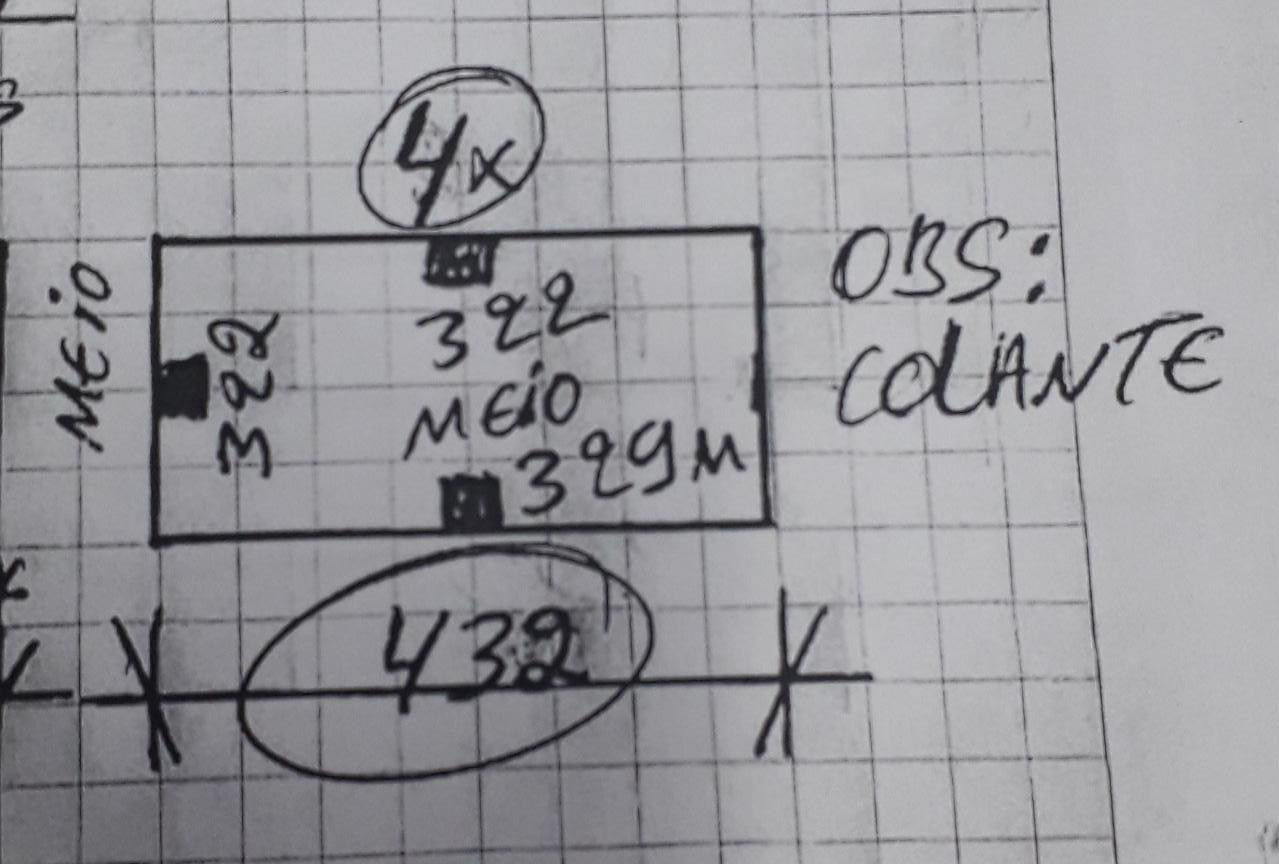 4x
MEIO
322
322
MEIO
329M
OBS:
COLANTE
432